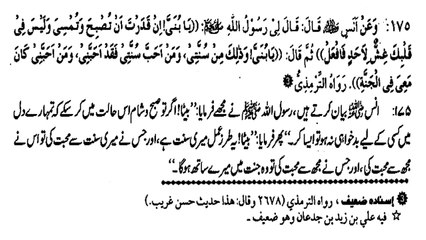 ١٧٥: وَعَنْ اَنَسٍ ﷺ قَالَ: قَالَ لِیْ رَسُوْلُ اللّٰہِ ﷺ: ((یَا بُنَیَّ! اِنْ قَدَرْتَ اَنْ تُصْبِحَ وَتُمْسِیَ وَلَیْسَ فِیْ
قَلْبِکَ غِشٌّ لِاَحَدٍ فَافْعَلْ)) ثُمَّ قَالَ: ((یَا بُنَیَّ! وَذٰلِکَ مِنْ سُنَّتِیْ، وَمَنْ اَحَبَّ سُنَّتِیْ فَقَدْ اَحَبَّنِیْ، وَمَنْ اَحَبَّنِیْ کَانَ
مَعِیَ فِی الْجَنَّةِ)). رَوَاہُ التِّرْمِذِیُّ
١٧٥: انس ﷺ بیان کرتے ہیں، رسول اللہ ﷺ نے مجھے فرمایا: ’’بیٹا! اگر تو صبح و شام اس حالت میں کر سکے کہ تمہارے دل
میں کسی کے لیے بدخواہی نہ ہو تو ایسا کر۔‘‘ پھر فرمایا: ’’بیٹا! یہ طرز عمل میری سنت سے ہے، اور جس نے میری سنت سے محبت کی تو اس نے
مجھ سے محبت کی، اور جس نے مجھ سے محبت کی تو وہ جنت میں میرے ساتھ ہو گا۔‘‘
إسناده ضعيف، رواه الترمذي (٢٦٧٨ وقال: هذا حديث حسن غريب.)
☆ فيه علي بن زيد بن جدعان وهو ضعيف۔